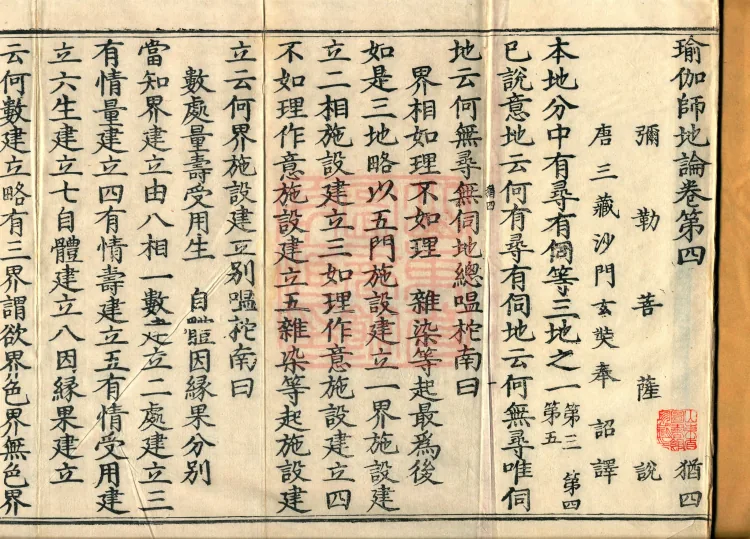 瑜伽師地論卷第四 猶四
彌勒菩薩說
唐三藏沙門玄奘奉 詔譯
本地分中有尋有伺等三地之一第三 第四 第五
已說意地云何有尋有伺地云何無尋唯伺
地云何無尋無伺地總嗢柁南曰
界相如理不如理 雜染等起最為後
如是三地略以五門施設建立一界施設建
立二相施設建立三如理作意施設建立四
不如理作意施設建立五雜染等起施設建
立云何界施設建立別嗢柁南曰
數處量壽受用生 自體因緣果分別
當知界建立由八相一數建立二處建立三
有情量建立四有情壽建立五有情受用建
立六生建立七自體建立八因緣果建立
云何數建立略有三界謂欲界色界無色界